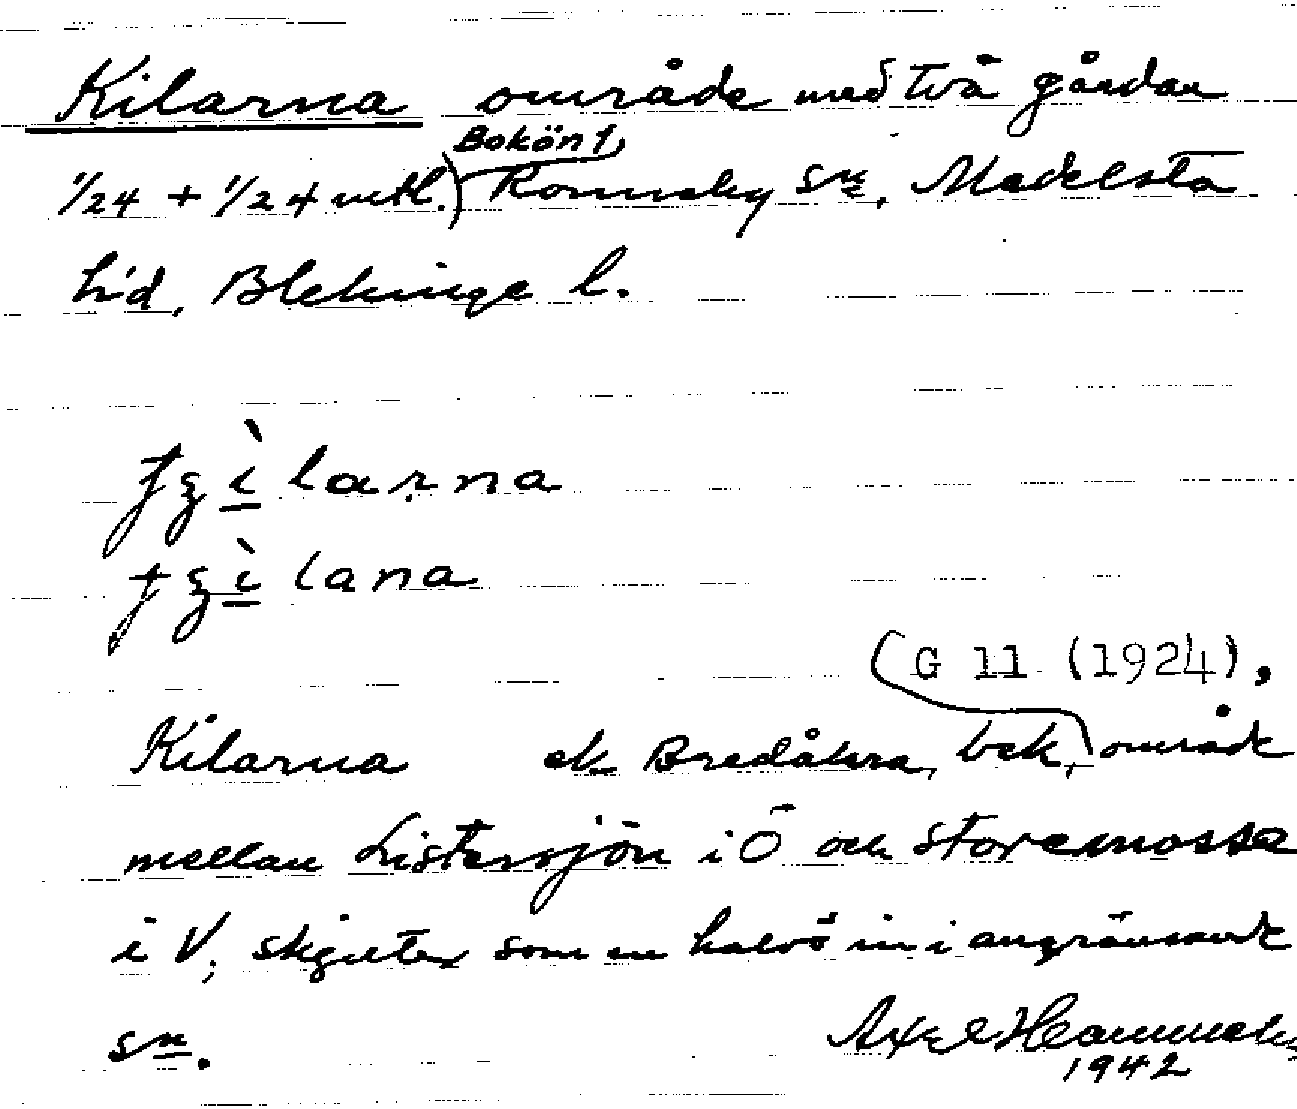 Kilarna område med två gårdar
Bokön 1,
1/24 + 1/24 mtl. Ronneby sn, Medelsta
h:d, Blekinge l.
ʃʒìlarna
ʃʒìlana
G 11 (1924),
Kilarna ek Bredåkra, bek, område
mellan Listersjön i Ö och Storemosse
i V; skjuter som en halvö in i angränsande
sn.
Axel Hammneby
1942